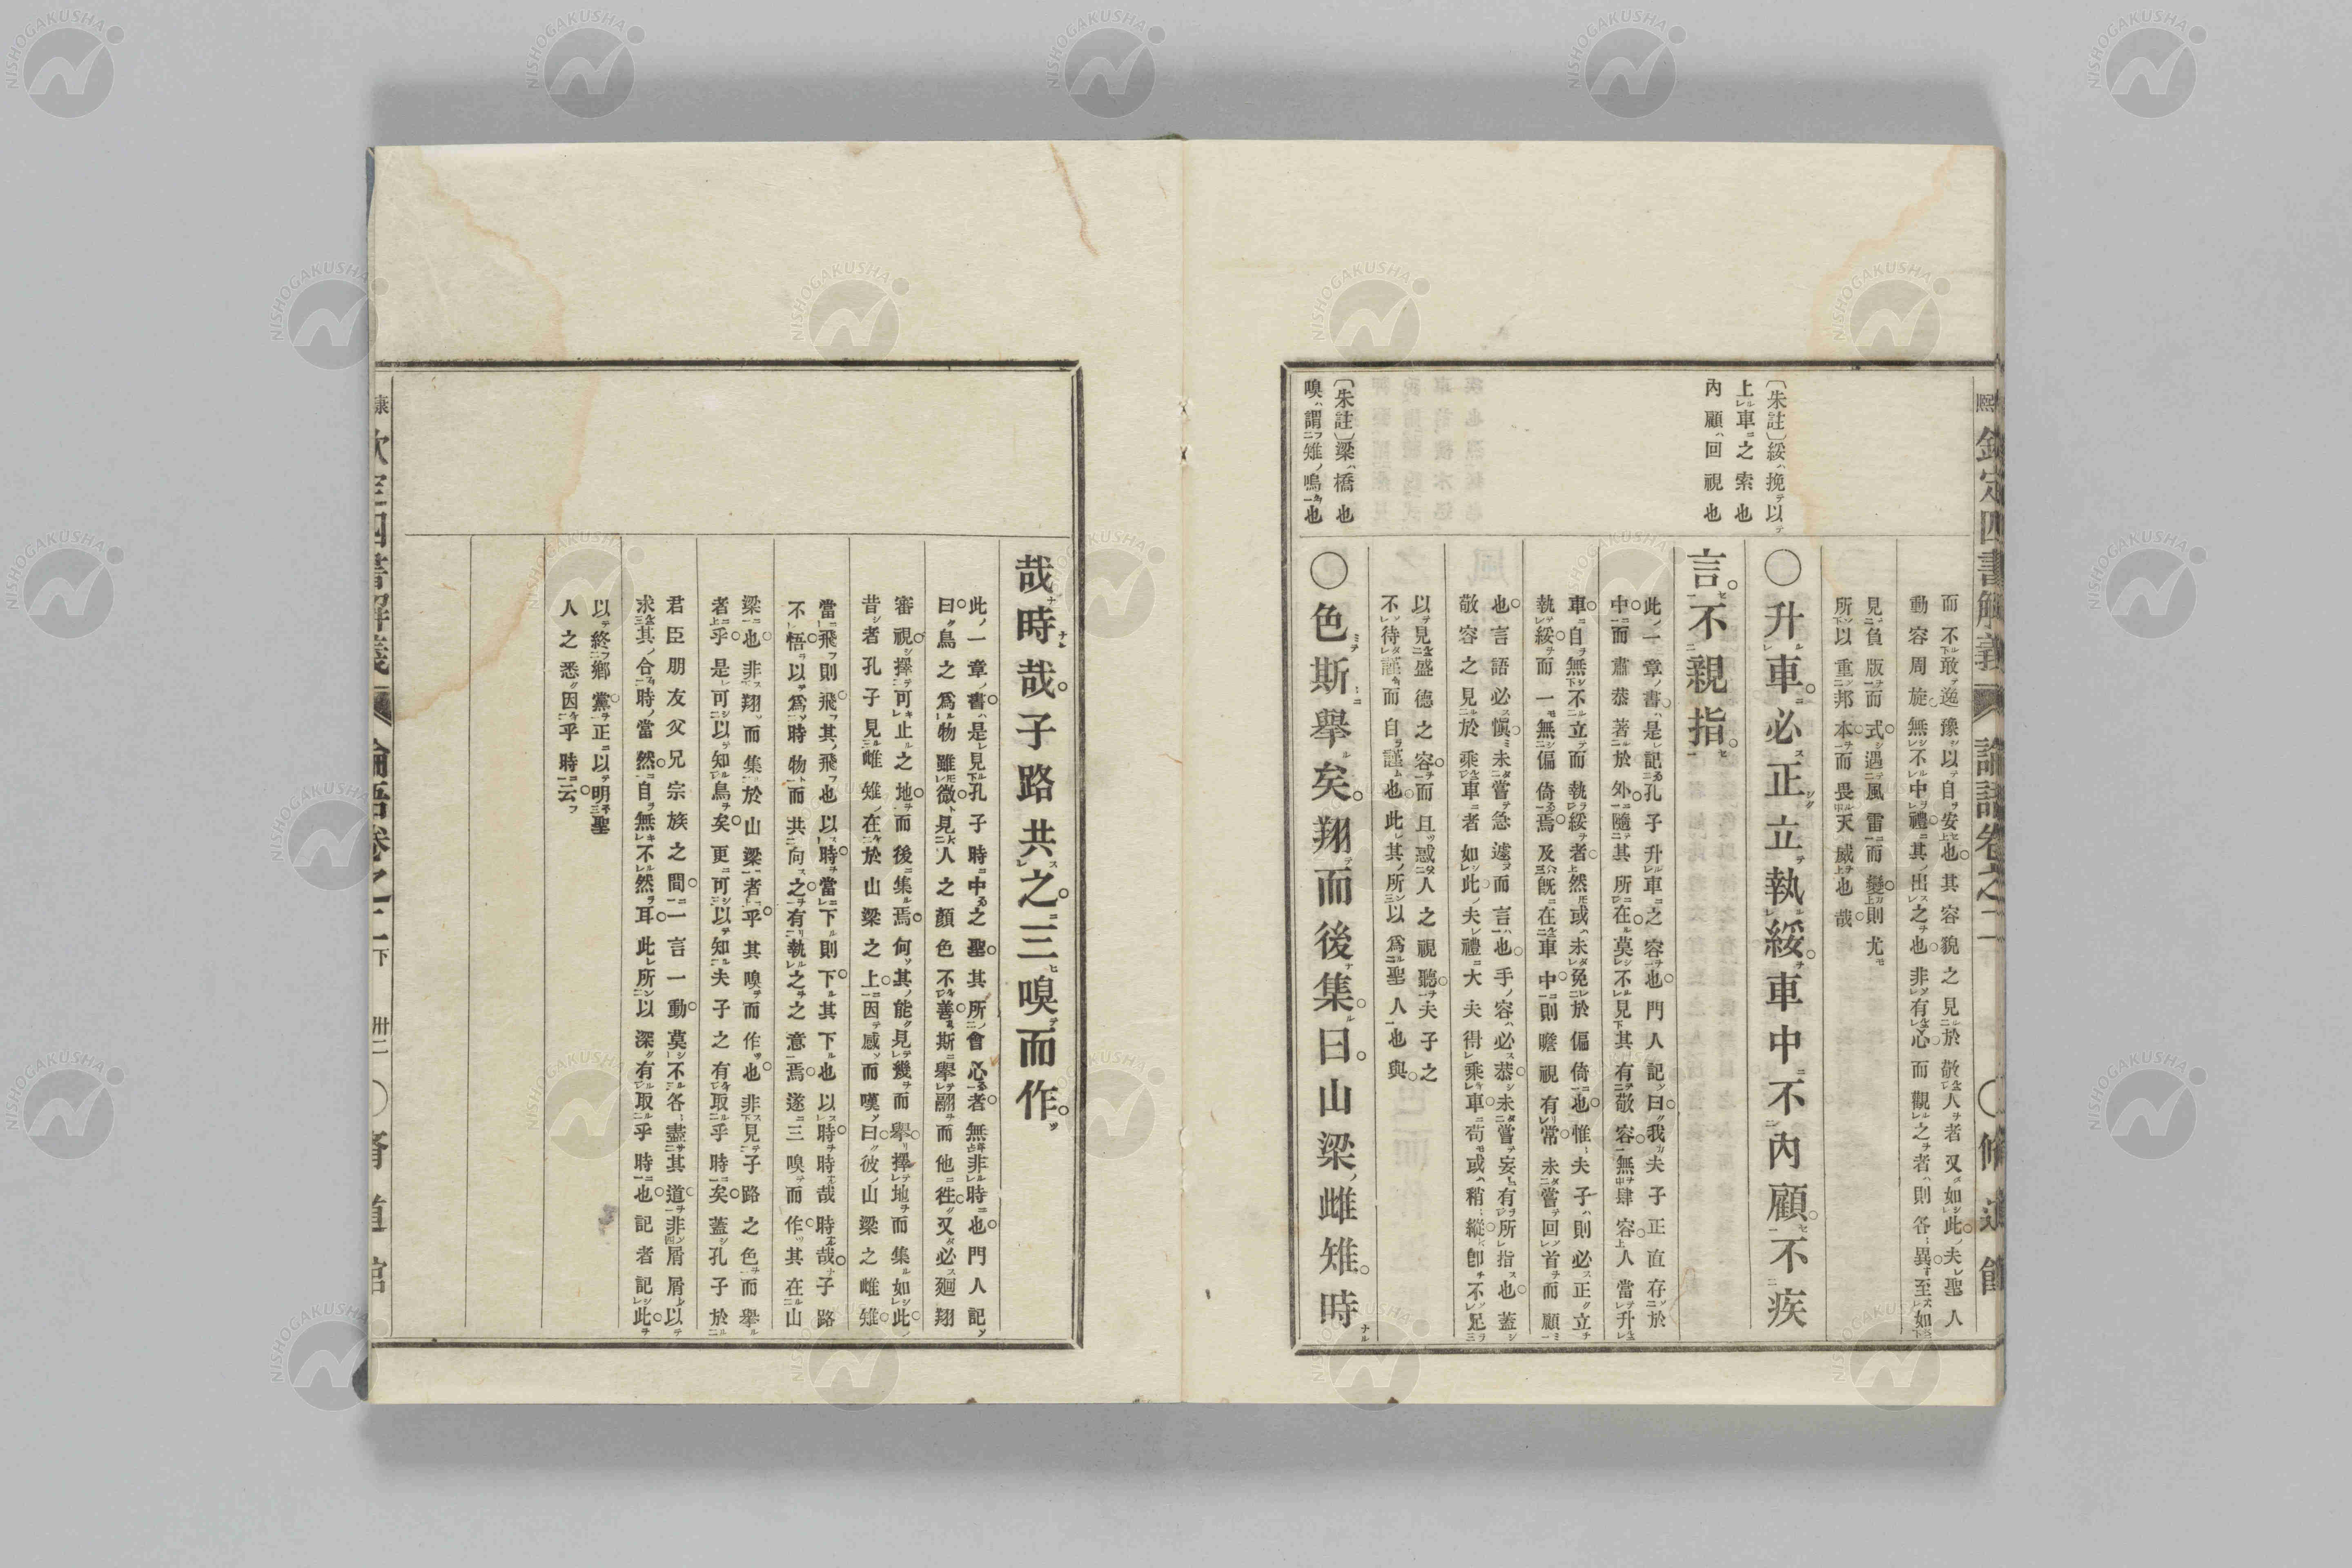 而不敢逸豫以自安也其容貌之見於敬人者又如此夫聖人
動容周旋無不中禮其出之也非有心而觀之者則各異至如
見負版而式遇風雷而變則尤
所以重邦本而畏天威也哉
〔朱註〕綏挽以
上車之索也
內顧回視也
○升車必正立執綏車中不內顧不疾
言不親指
此一章書是記孔子升車之容也門人記曰我夫子正直存於
中而肅恭著於外隨其所在莫不見其有敬容無肆容人當升
車自無不立而執綏者然或未免於偏倚也惟夫子則必正立
執綏而一無偏倚焉及旣在車中則瞻視有常未嘗回首而顧
也言語必愼未嘗急遽而言也手容必恭未嘗妄有所指也蓋
敬容之見於乘車者如此夫禮大夫得乘車苟或稍縱卽不足
以見盛德之容而且惑人之視聽夫子之
不待謹而自謹也此其所以爲聖人也與
〔朱註〕梁橋也
嗅謂雉鳴也
○色斯擧矣翔而後集曰山梁雌雉時
哉時哉子路共之三嗅而作
此一章書是見孔子時中之聖其所會心者無非時也門人記
曰鳥之爲物雖微見人之顏色不善斯擧翮而他徃又必廻翔
審視擇可止之地而後集焉何其能見幾而擧擇地而集如此
昔者孔子見雌雉在於山梁之上因感而嘆曰彼山梁之雌雉
當飛則飛其飛也以時當下則下其下也以時時哉時哉子路
不悟以爲時物而共向之有執之之意焉遂三嗅而作其在山
梁也非翔而集於山梁者乎其嗅而作也非見子路之色而擧
者乎是可以知鳥矣更可以知夫子之有取乎時矣蓋孔子於
君臣朋友父兄宗族之間一言一動莫不各盡其道非屑屑以
求其合時當然自無不然耳此所以深有取乎時也記者記此
以終鄕黨正以明聖
人之悉因乎時云
欽定四書解義 論語卷之二下